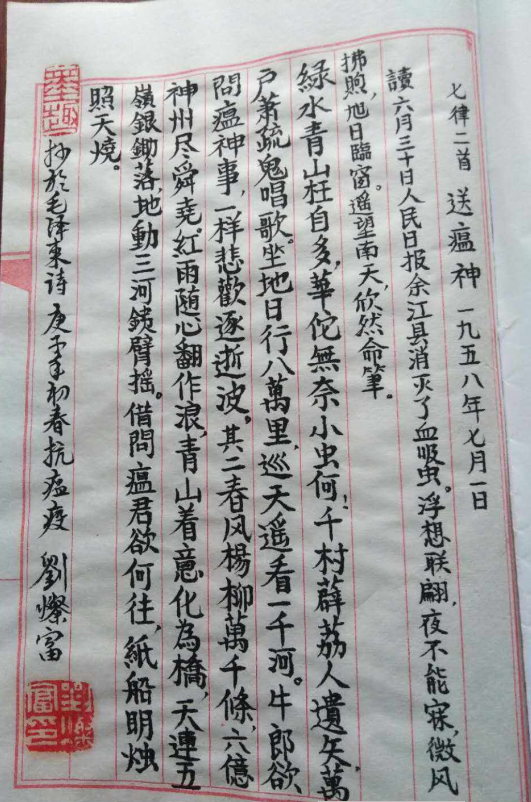 七律二首 送瘟神 一九五八年七月一日
讀六月三十日人民日报余江县消灭了血吸虫。浮想联翩，夜不能寐，微风
拂煦，旭日臨窗。遥望南天，欣然命筆。
綠水青山枉自多，華佗無奈小虫何！千村薜荔人遺矢，萬
户萧疏鬼唱歌。坐地日行八萬里，巡天遥看一千河。牛郎欲
問瘟神事，一样悲歡逐逝波。其二春风楊柳萬千條，六億
神州尽舜堯。紅雨随心翻作浪，青山着意化為橋，天連五
嶺銀鋤落，地動三河鐵臂摇。借問瘟君欲何往，紙船明烛
照天燒。
抄於毛泽東诗 庚子年初春抗瘟疫 劉燦富
墨趣